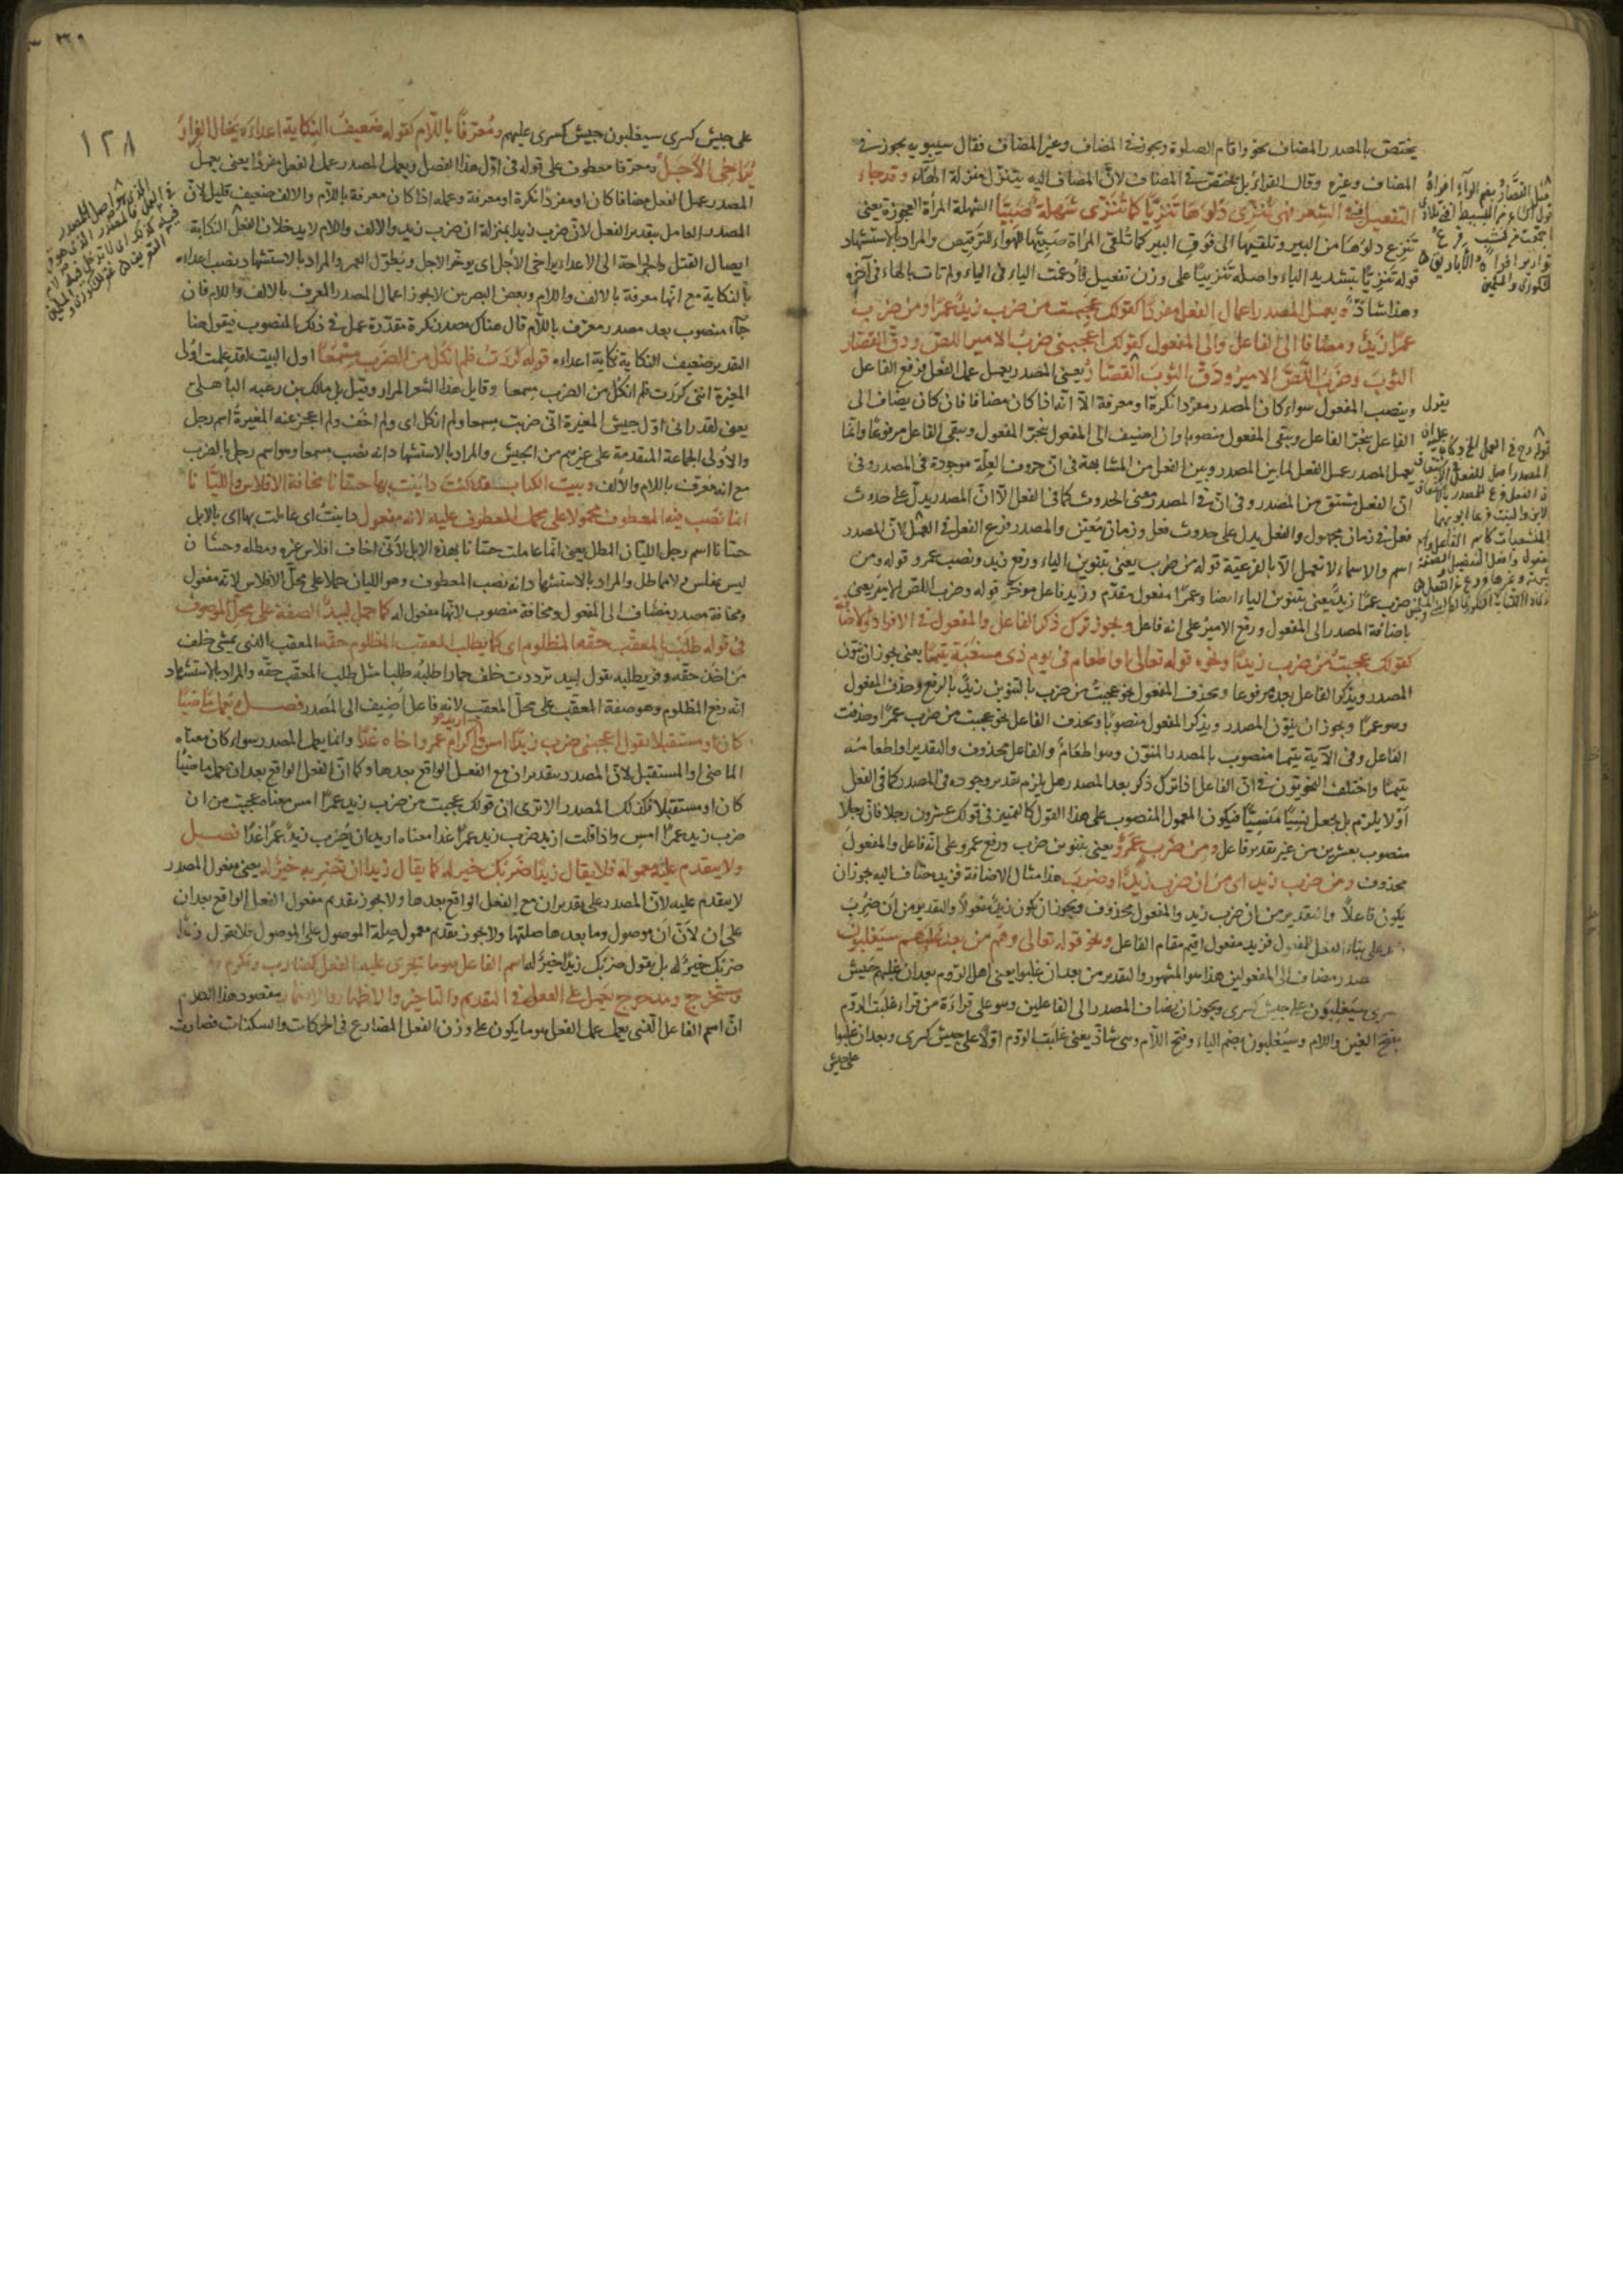 يختص بالمصدر المضاف نحو واقام الصلوة ويجوز في المضاف وغير المضاف فقال سيبويه يجوز في
المضاف وغيره وقال الفراء بل يختص في المضاف لانّ المضاف اليه يتنزل منزلة الهاء وقد جاء
التفعيل في الشعر فهى تُنَزّى دَلوَها تَنزِيًّا كما تُنَزّى شَهلة صَبِيًّا الشهلة المرأة العجوزة يعنى
تنزع دلوها من البير وتلقيها الى فوق البير كما تلقى المرأة صبيّها للهواء للترقيص والمراد بالاستشهاد
قوله تنزيًّا بتشديد الياء واصله تنزييًا على وزن تفعيل فأدغمت الياء في الياء ولم تات بالهاء في آخره
وهذا شاذّ ويعمل المصدر اعمال الفعل مفردًا كقولك عجبت من ضرب زيدٌ عمرًا ومن ضرب
عمرًا زيدٌ ومضافا الى الفاعل والى المفعول كقولك اعجبنى ضربُ الامير اللصّ ودقّ القصّار
الثوبَ وضربُ اللصّ الاميرُ ودقّ الثوبِ القصّارُ يعنى المصدر يعمل عمل الفعل فرفع الفاعل
وينصب المفعول سواء كان المصدر مفردا نكرة او معرفة الّا انّه اذا كان مضافا فان كان يضاف الى
الفاعل ينجرّ الفاعل ويبقى المفعول منصوبا وان اضيف الى المفعول ينجرّ المفعول ويبقى الفاعل مرفوعًا وانّما
يعمل المصدر عمل الفعل لما بين المصدر وبين الفعل من المشابهة في ان حروف الفعل موجودة في المصدر وفي
ان الفعل مشتق من المصدر وفي ان في المصدر معنى الحدوث كما في الفعل الّا ان المصدر يدلّ على حدوث
فعل في زمان مجهول والفعل يدل على حدوث فعل وزمان معيّن والمصدر فرع الفعل في العمل لانّ المصدر
اسم والاسماء لا تعمل الّا بالفرعيّة قوله من ضرب يعنى بتنوين الباء ورفع زيد ونصب عمرو قوله ومن
ضرب عمرًا زيدٌ يعنى بتنوين الباء ايضا وعمرًا مفعول مقدّم وزيد فاعل مؤخّر قوله وضرب اللصّ الامير يعنى
باضافة المصدر الى المفعول ورفع الامير على انه فاعل ويجوز ترك ذكر الفاعل والمفعول في الافراد والاضافة
كقولك عجبت من ضرب زيدًا ونحوه قوله تعالى او اطعام في يوم ذى مسغبة يتيمًا يعنى يجوز ان ينوّن
المصدر ويذكر الفاعل بعده مرفوعا ويحذف المفعول نحو عجبت من ضرب بالتنوين زيدٌ بالرفع وحذف المفعول
وهو عمرًا ويجوز ان ينوّن المصدر ويذكر المفعول منصوبًا ويحذف الفاعل نحو عجبت من ضرب عمرًا وحذفت
الفاعل وفي الآية يتيما منصوب بالمصدر المنوّن وهو اطعامٌ والفاعل محذوف والتقدير او اطعامه
يتيمًا واختلف النحويّون في انّ الفاعل اذا ترك ذكره بعد المصدر هل يلزم تقدير وجوده في المصدر كما في الفعل
او لا يلزم بل يجعل نسيًا منسيًّا فيكون المعمول المنصوب على هذا القول كالتميز في قولك عشرون رجلا فان رجلا
منصوب بعشرين من غير تقدير فاعل ومن ضرب عمرٌو يعنى بتنوين ضرب ورفع عمرو على انّه فاعل والمفعول
محذوف ومن ضرب زيد اى من ان ضرب زيدٌ او ضُرِبَ هذا مثال الاضافة فزيد مضاف اليه يجوز ان
يكون فاعلًا والتقدير من ان ضرب زيد والمفعول محذوف ويجوز ان يكون زيدٌ مفعولًا والتقدير من ان ضُرِبَ
على بناء الفعل للمفعول فزيد مفعول اقيم مقام الفاعل ونحو قوله تعالى وهم من بعد غلبهم سيغلبون
مصدر مضاف الى المفعولين هذا هو المشهور والتقدير من بعد ان غلبوا يعنى اهل الروم بعد ان غلبهم جيش
كسرى سيَغلِبون على جيش كسرى ويجوز ان يضاف المصدر الى الفاعلين وهو على قراءة من قراء غلبت الروم
بفتح الغين واللام وسيُغلبون بضم الياء وفتح اللام وهى شاذّ يعنى غلبت الروم اوّلًا على جيش كسرى وبعد ان غلبوا
على جيش
١٢٨
على جيش كسرى سيغلبون جيش كسرى عليهم ومُعرّفًا باللام كقوله ضعيف النكاية اعداءه يخال الفرار
يُراخى الاجلَ ومعرّفا معطوف على قوله في اوّل هذا الفصل ويعمل المصدر عمل الفعل مفردًا يعنى يعمل
المصدر عمل الفعل مضافا كان او مفردًا نكرة او معرفة وعمله اذا كان معرفة باللام والالف ضعيف قليل لانّ
المصدر العامل بتقدير الفعل لانّ ضرب زيدا بمنزلة ان ضرب زيد والالف واللام لا يدخلان الفعل النكاية
ايصال القتل والجراحة الى الاعداء يراخى الاجل اى يوخّر الاجل ويُطوّل العمر والمراد بالاستشهاد نصب اعداءه
بالنكاية مع انّها معرفة بالالف واللام وبعض البصريين لا يجوز اعمال المصدر المعرف بالالف واللام فان
جآء منصوب بعد مصدر معرّف باللام قال هناك مصدر نكرة مقدّرة عمل في ذلك المنصوب فيقول هنا
التقدير ضعيف النكاية نكاية اعداءه قوله كررتُ فلم انكل من الضرب مِسمَعًا اول البيت لقد علمت اولى
المغيرة اننى كررت فلم انكل من الضرب مسمعا وقايل هذا الشعر المرار وقيل بل مالك بن زغبه الباهلى
يعنى لقدرانى اوّل جيش المغيرة انى ضربت مسمعا ولم انكل اى ولم اخَف ولم اعجز عنه المغيرة اسم رجل
والاولى الجماعة المتقدمة على غيرهم من الجيش والمراد بالاستشهاد انه نصب مسمعا وهو اسم رجل بالضرب
مع انه معرفت باللام والالف وبيت الكتاب قد كنت داينت بها حسّانا مخافة الافلاس والليّانا
انما نصب فيه المعطوف محمولا على محل المعطوف عليه لانه مفعول داينتُ اى عاملت بها اى بالابل
حسّانا اسم رجل الليّان المطل يعنى انّما عاملت حسّانا بهذه الابل لأنّى اخاف افلاس غيره ومطله وحسّان
ليس بمفلس ولا مماطل والمراد بالاستشهاد انه نصب المعطوف وهو الليان حملا على محلّ الافلاس لانّه مفعول
ومخافة مصدر مضاف الى المفعول ومخافة منصوب لانّها مفعول له كما حمل لبيدٌ الصفة على محلّ الموصوف
في قوله طلب المعقّب حقّه المظلوم اى كما يطلب المعقب المظلوم حقّه المعقب الذى يمشى خلف
من اخذ حقّه ويطلبه يقول لبيد تردّدت خلف حمار اطلبه طلبا مثل طلب المعقّب حقّه والمراد بالاستشهاد
انّه رفع المظلوم وهو صفة المعقّب على محلّ المعقب لانه فاعل اضيف الى المصدر فصل ويعمل ماضيًا
كان او مستقبلا تقول اعجبنى ضرب زيدًا امس واريد اكرام عمرو اخاه غدًا وانما يعمل المصدر سواء كان معناه
الماضى او المستقبل لانّ المصدر بتقدير ان مع الفعل الواقع بعدها وكما انّ الفعل الواقع بعد ان يعمل ماضيًا
كان او مستقبلا فكذلك المصدر الا ترى ان قولك عجبت من ضرب زيد عمرًا امس معناه عجبت من ان
ضرب زيد عمرًا امس واذا قلت اريد ضرب زيد عمرًا غدا معناه اريد ان يضرب زيدٌ عمرًا غدًا فصل
ولا يتقدم عليه معموله فلا يقال زيدًا ضربك خير له كما يقال زيدا ان تضرب خيرٌ له يعنى معمول المصدر
لا يتقدم عليه لانّ المصدر على تقدير ان مع الفعل الواقع بعدها ولا يجوز تقديم مفعول الفعل الواقع بعد ان
على ان لانّ أن موصول وما بعدها صلتها ولا يجوز تقديم معمول صلة الموصول على الموصول فلا تقول زيدًا
ضربك خيرٌ له بل تقول ضربك زيدًا خيرٌ له اسم الفاعل هو ما يجرى على الفعل كضارب ومكرم
ومستخرج ومدحرج يعمل عمل الفعل في التقديم والتاخير والاظهار والاضمار مقصود هذا الكلام
انّ اسم الفاعل الّذى يعمل عمل الفعل هو ما يكون على وزن الفعل المضارع في الحركات والسكنات فضارب